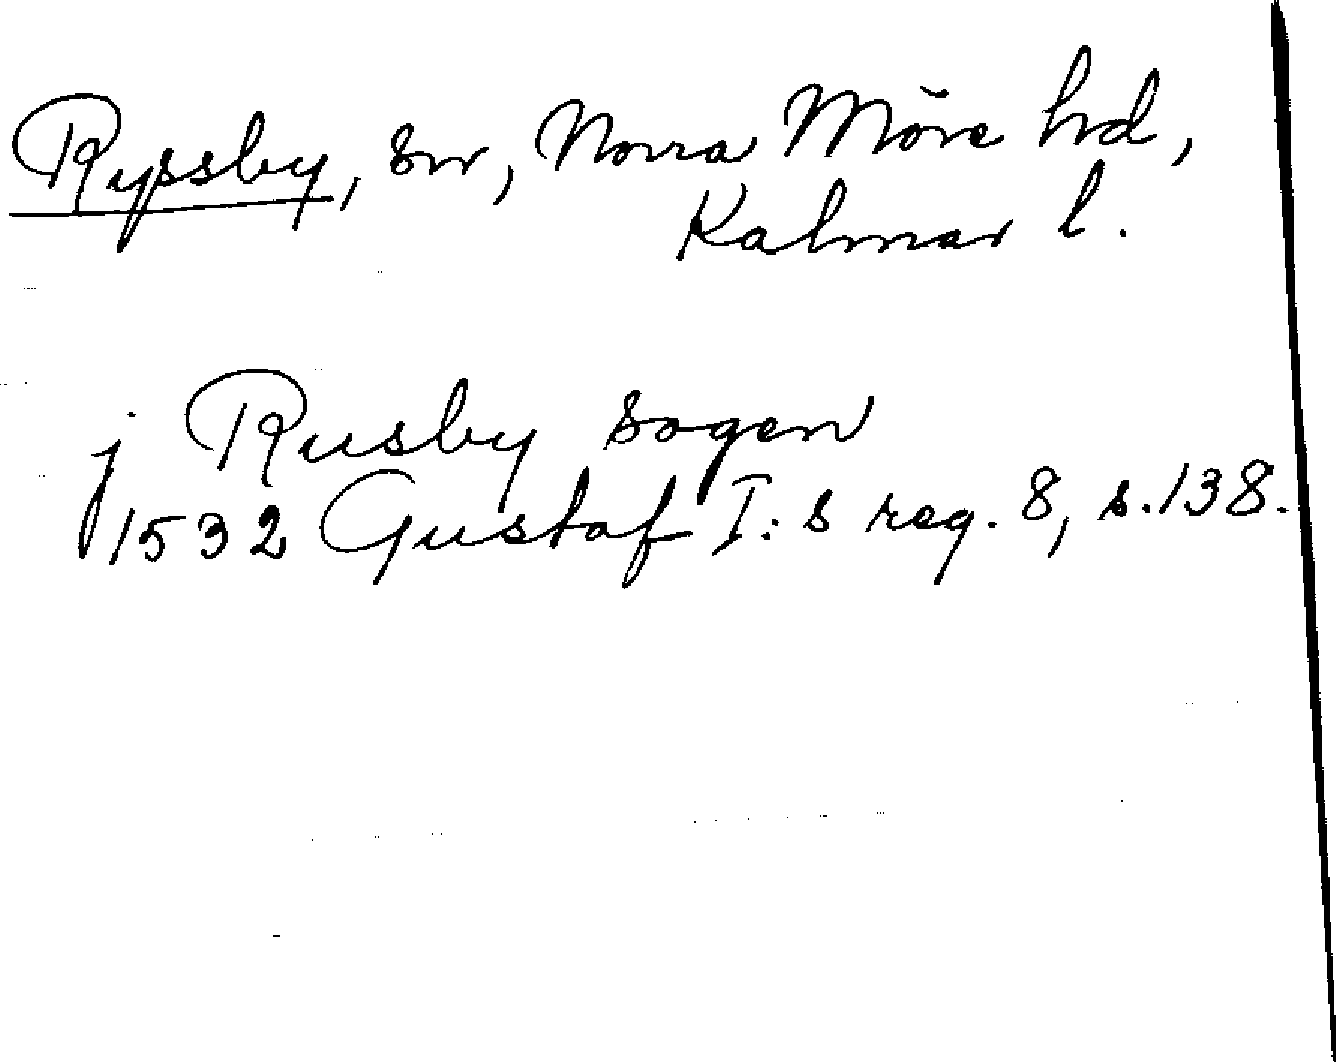 Ryssby, sn, Norra Möre hd,
Kalmar l.
j Rusby sogen
1532 Gustaf I:s reg. 8, s. 138.